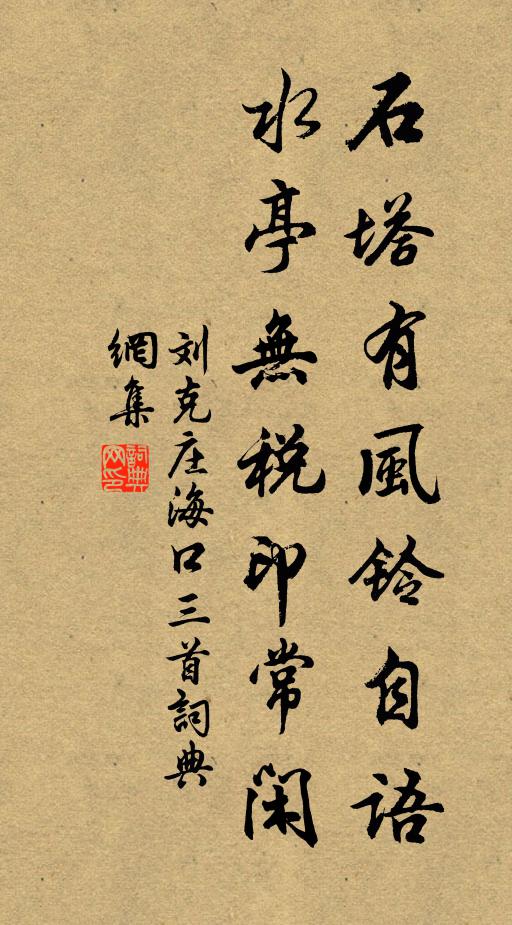 石塔有風鈴自語
水亭無税印常閑
刘克庄海口三首詞典
網集
詞典
网印